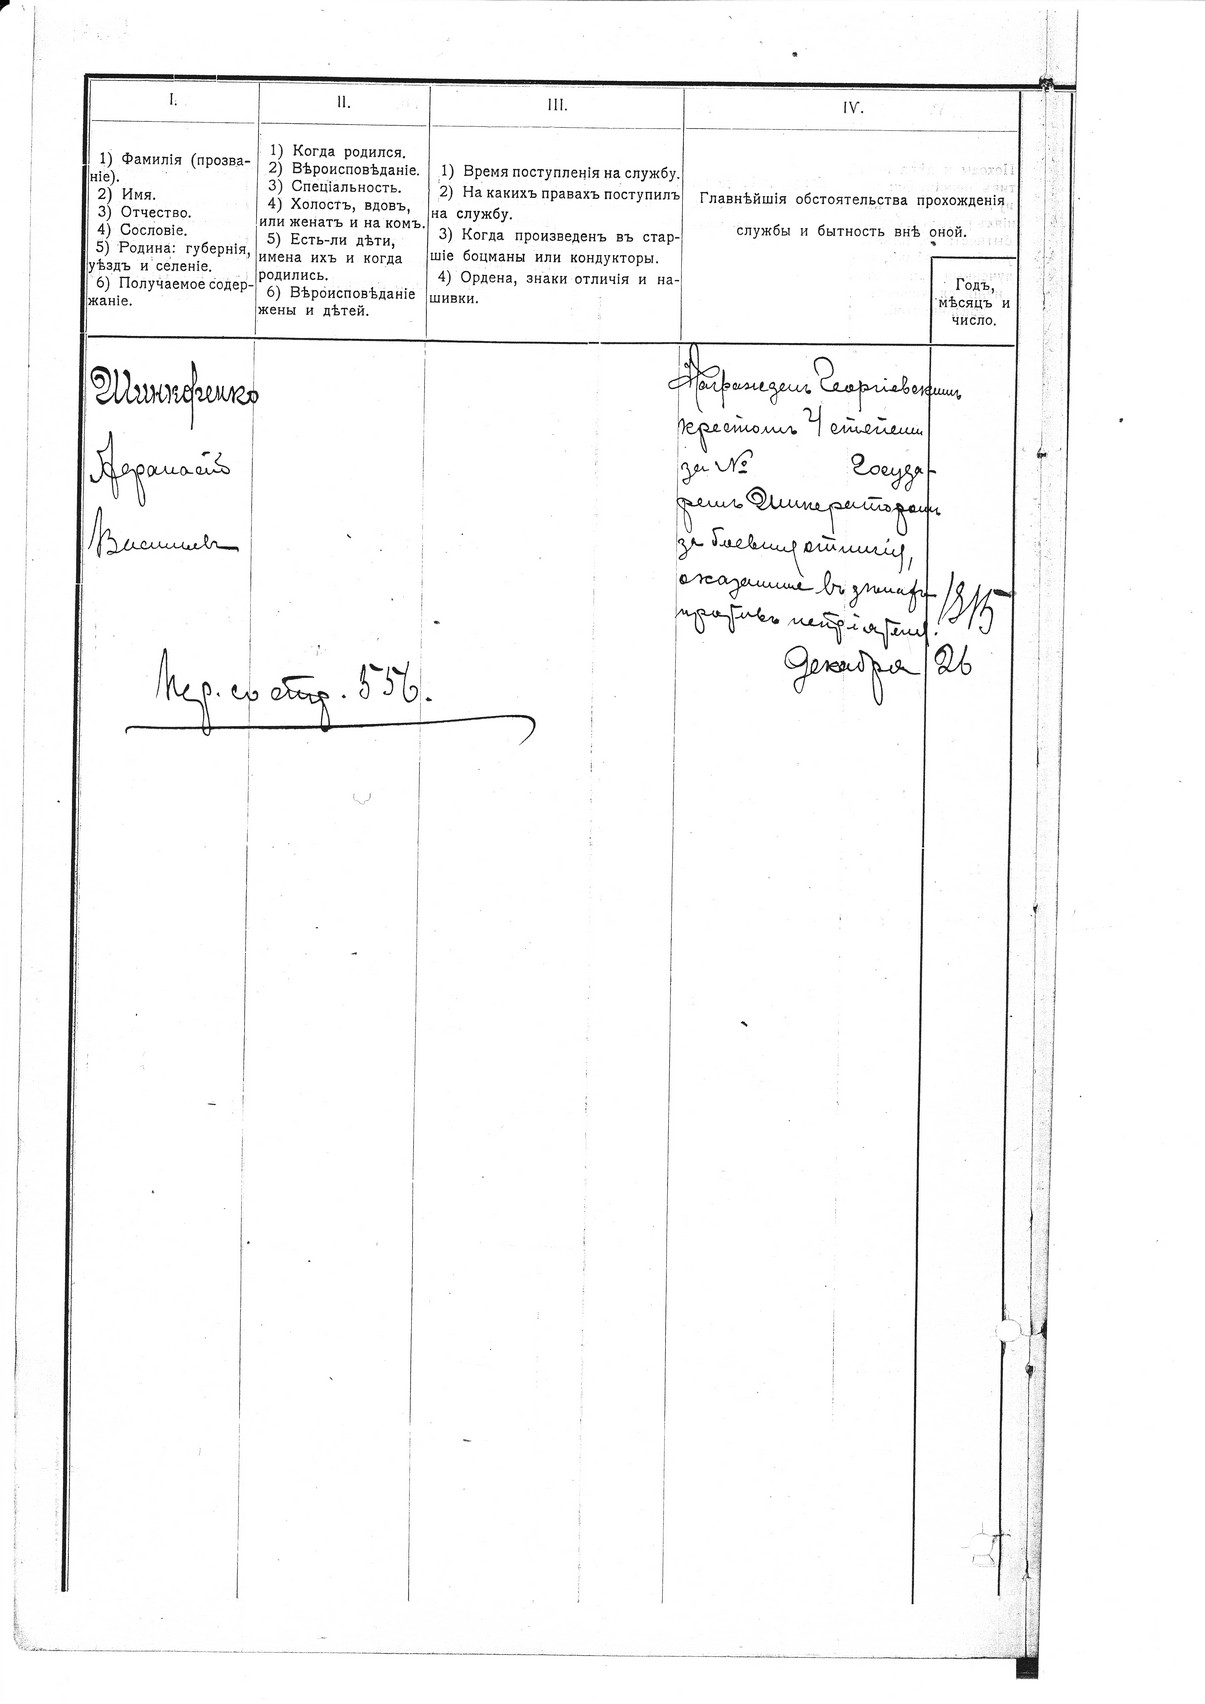 I.
1) Фамилія (прозва-
ніе).
2) Имя.
3) Отчество.
4) Сословіе.
5) Родина: губернія,
уѣздъ и селеніе.
6) Получаемое содер-
жаніе.
II.
1) Когда родился.
2) Вѣроисповѣданіе.
3) Спеціальность.
4) Холостъ, вдовъ,
или женатъ и на комъ.
5) Есть-ли дѣти,
имена ихъ и когда
родились.
6) Вѣроисповѣданіе
жены и дѣтей.
III.
1) Время поступленія на службу.
2) На какихъ правахъ поступилъ
на службу.
3) Когда произведенъ въ стар-
шіе боцманы или кондукторы.
4) Ордена, знаки отличія и на-
шивки.
IV.
Главнѣйшія обстоятельства прохожденія
службы и бытность внѣ оной.
Годъ,
мѣсяцъ и
число.
Васильевъ
Пер. со стр. 556.
Награжденъ Георгіевскимъ
крестомъ 4 степени
за № Госуда-
ремъ Императоромъ
за боевыя отличія,
оказанные въ
противъ непріятеля. 1915
Декабря 26